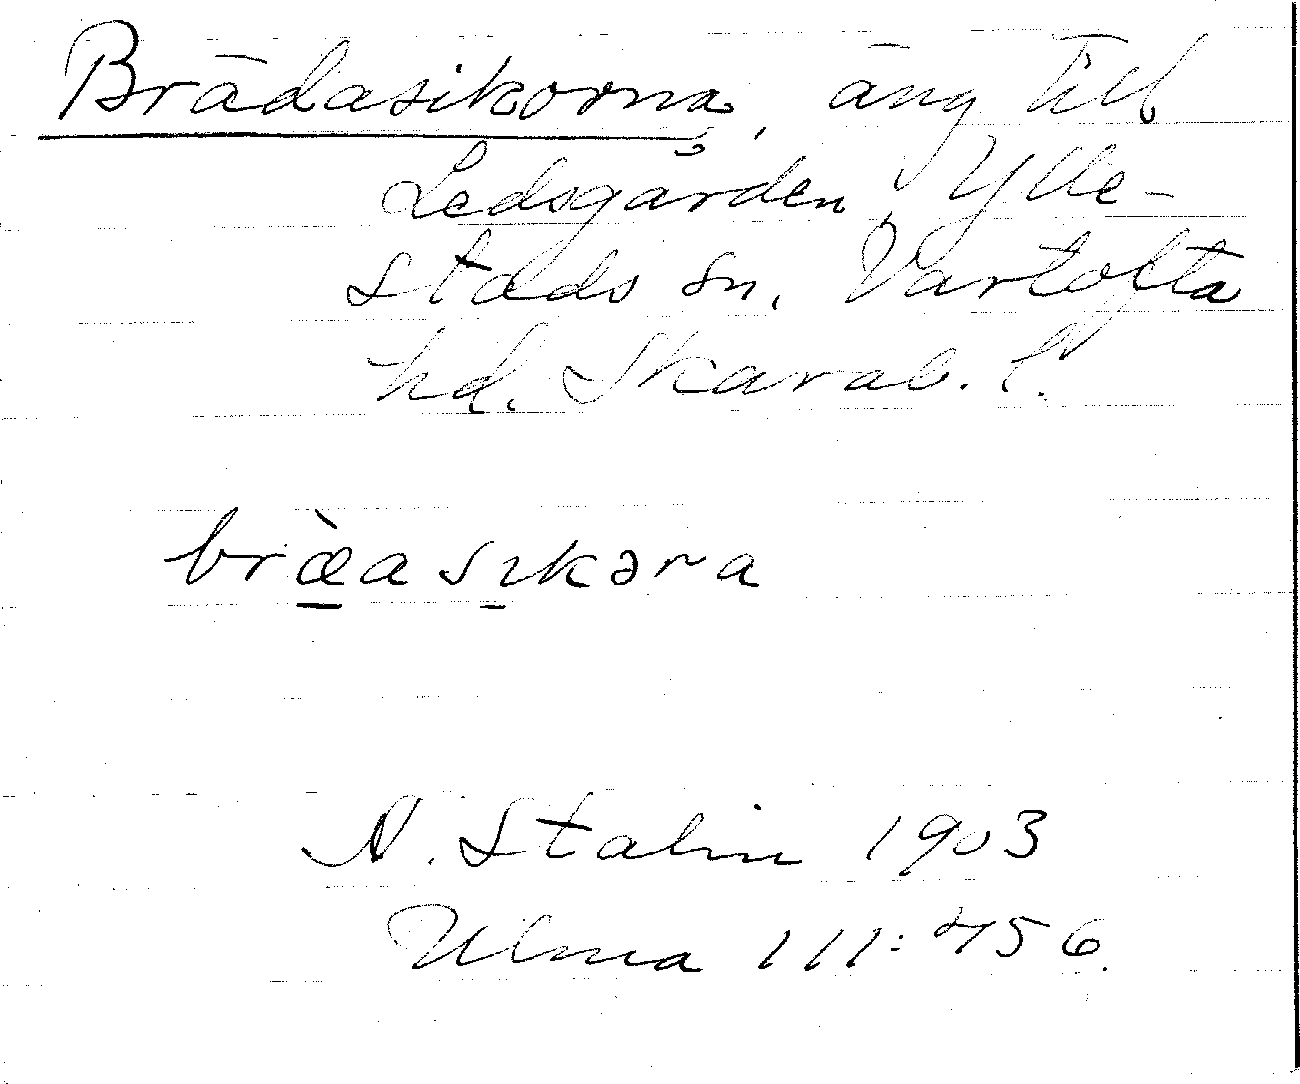 Brädasikorna, äng till
Ledsgården, Ylle-
stads sn, Vartofta
hd. Skarab. l.
bræ̀asıkəra
N. Stalin 1903
Ulma 111:456.